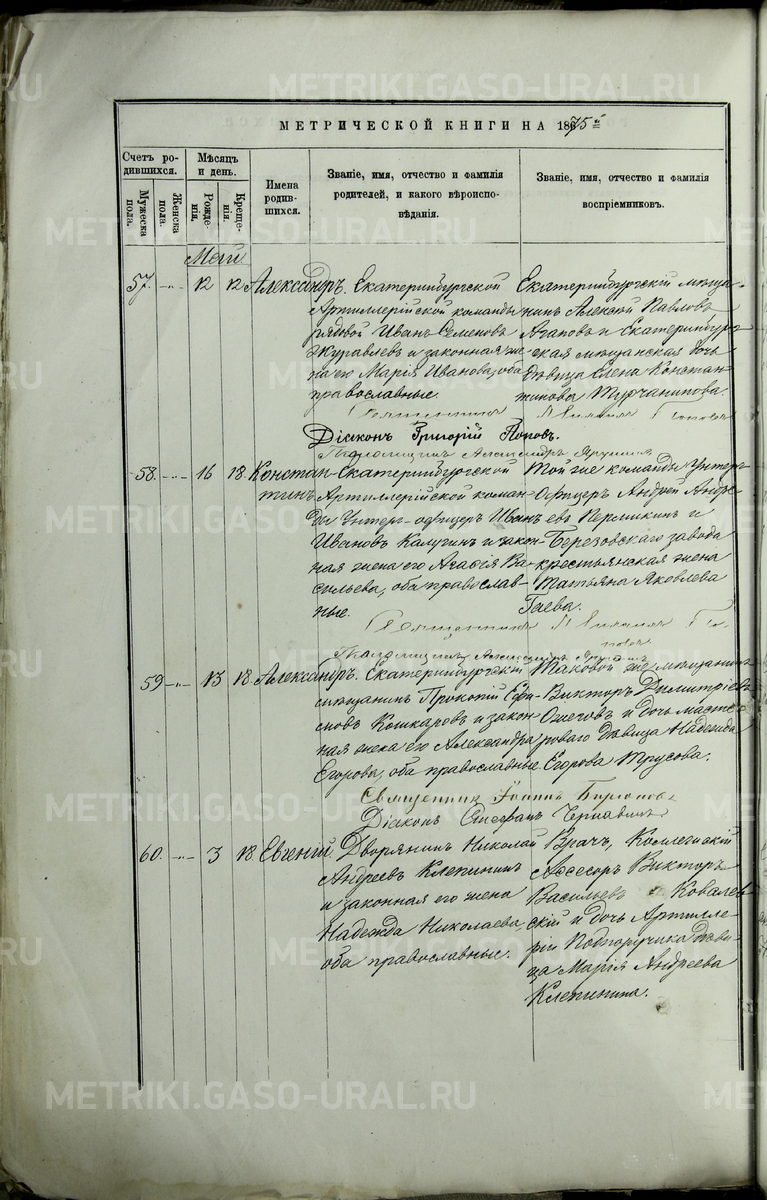 МЕТРИЧЕСКОЙ КНИГИ НА 1875й
Счетъ родившихся.
Мужеска пола.
Женска пола.
Мѣсяцъ и день.
Рожденія.
Крещенія.
Имена родившихся.
Званіе, имя, отчество и фамилія
родителей, и какого вѣроиспо-
вѣданія.
Званіе, имя, отчество и фамилія
воспріемниковъ.
Маій
57. 12 12 Александръ.
Екатеринбургской
Артиллерійской команды
рядовой Иванъ Семеновъ
Журавлевъ и законная же-
на его Марія Иванова, оба
православные.
Екатеринбургскій мѣща-
нинъ Алексѣй Павловъ
Агаповъ и Екатеринбург-
ская мѣщанская дочь
дѣвица Елена Констан-
тинова Турчанинова.
Священникъ Попов
Діаконъ Григорій Поповъ.
Псаломщикъ Александръ
58. 16 18 Констан-
тинъ
Екатеринбургской
Артиллерійской коман-
ды Унтеръ-офицеръ Иванъ
Ивановъ Калугинъ и закон-
ная жена его Агафія Ва-
сильева, оба православ-
ные.
Той же команды Унтеръ-
Офицеръ Андрей Андре-
евъ Пермикинъ и
Березовскаго завода
крестьянская жена
Татьяна Яковлева
Гаева.
Священникъ По-
повъ
Псаломщикъ Александръ
59 13 18 Александръ.
Екатеринбургскій
мѣщанинъ Прокопій Ефи-
мовъ Кошкаровъ и закон-
ная жена его Александра
Егорова, оба православные
Таковой же мѣщанинъ
Викторъ Димитріевъ
Ожеговъ и дочь масте-
роваго дѣвица Надежда
Егорова Трусова.
Священникъ Іоаннъ
Діаконъ Стефанъ Чернавинъ
60. 3 18 Евгеній.
Дворянинъ Николай
Андреевъ Клепининъ
и законная его жена
Надежда Николаева
оба православные.
Врачъ, Коллежскій
Ассесоръ Викторъ
Васильевъ Ковалев-
скій и дочь Артилле-
ріи Подпоручика дѣви-
ца Марія Андреева
Клепинина.
METRIKI.GASO-URAL.RU